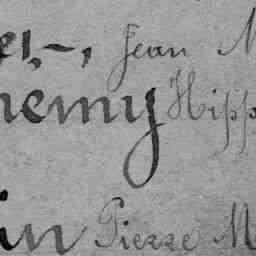 er, -, Jean M
hemy Hipp
in Pierre M